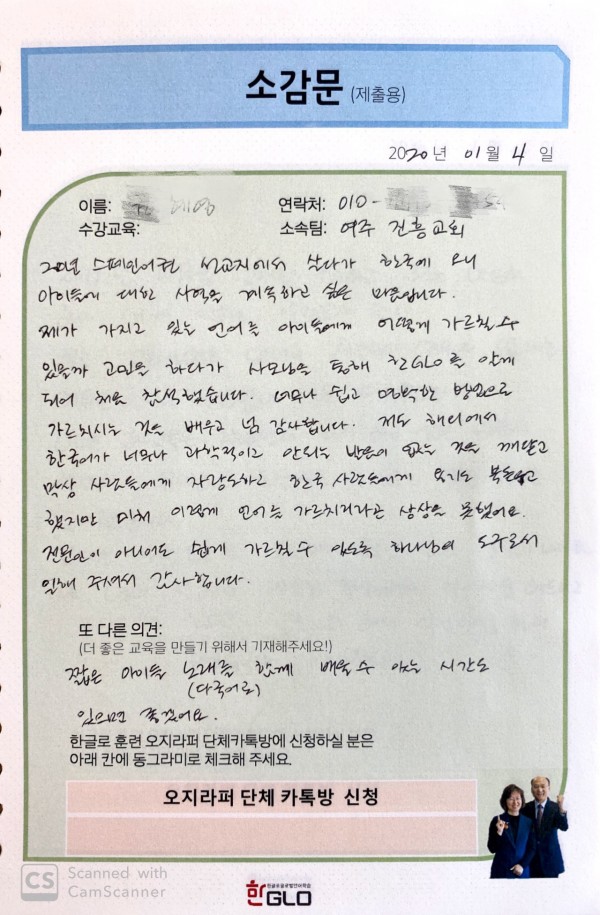 소감문 (제출용)
2020년 01월 4일
이름: 혜영 연락처: 010-
수강교육: 소속팀: 여주 건흥교회
20년 스페인어권 선교지에서 살다가 한국에 오니
아이들에 대한 사역을 계속하고 싶은 마음입니다.
제가 가지고 있는 언어를 아이들에게 어떻게 가르칠 수
있을까 고민을 하다가 사모님을 통해 한GLO를 알게
되어 처음 참석했습니다. 너무나 쉽고 명백한 방법으로
가르치시는 것을 배우고 넘 감사합니다. 저도 해외에서
한국어가 너무나 과학적이고 안되는 발음이 없는 것을 깨닫고
막상 사람들에게 자랑도하고 한국 사람들에게
했지만 미처 이렇게 언어를 가르치리라곤 상상을 못했어요.
전문인이 아니어도 쉽게 가르칠 수 있도록 하나님의 도구로서
일해 주셔서 감사합니다.
또 다른 의견:
(더 좋은 교육을 만들기 위해서 기재해주세요!)
짧은 아이들 노래를 함께 배울 수 있는 시간도
(다국어로)
있으면 좋겠어요.
한글로 훈련 오지라퍼 단체카톡방에 신청하실 분은
아래 칸에 동그라미로 체크해 주세요.
오지라퍼 단체 카톡방 신청
CS Scanned with
CamScanner
한GLO